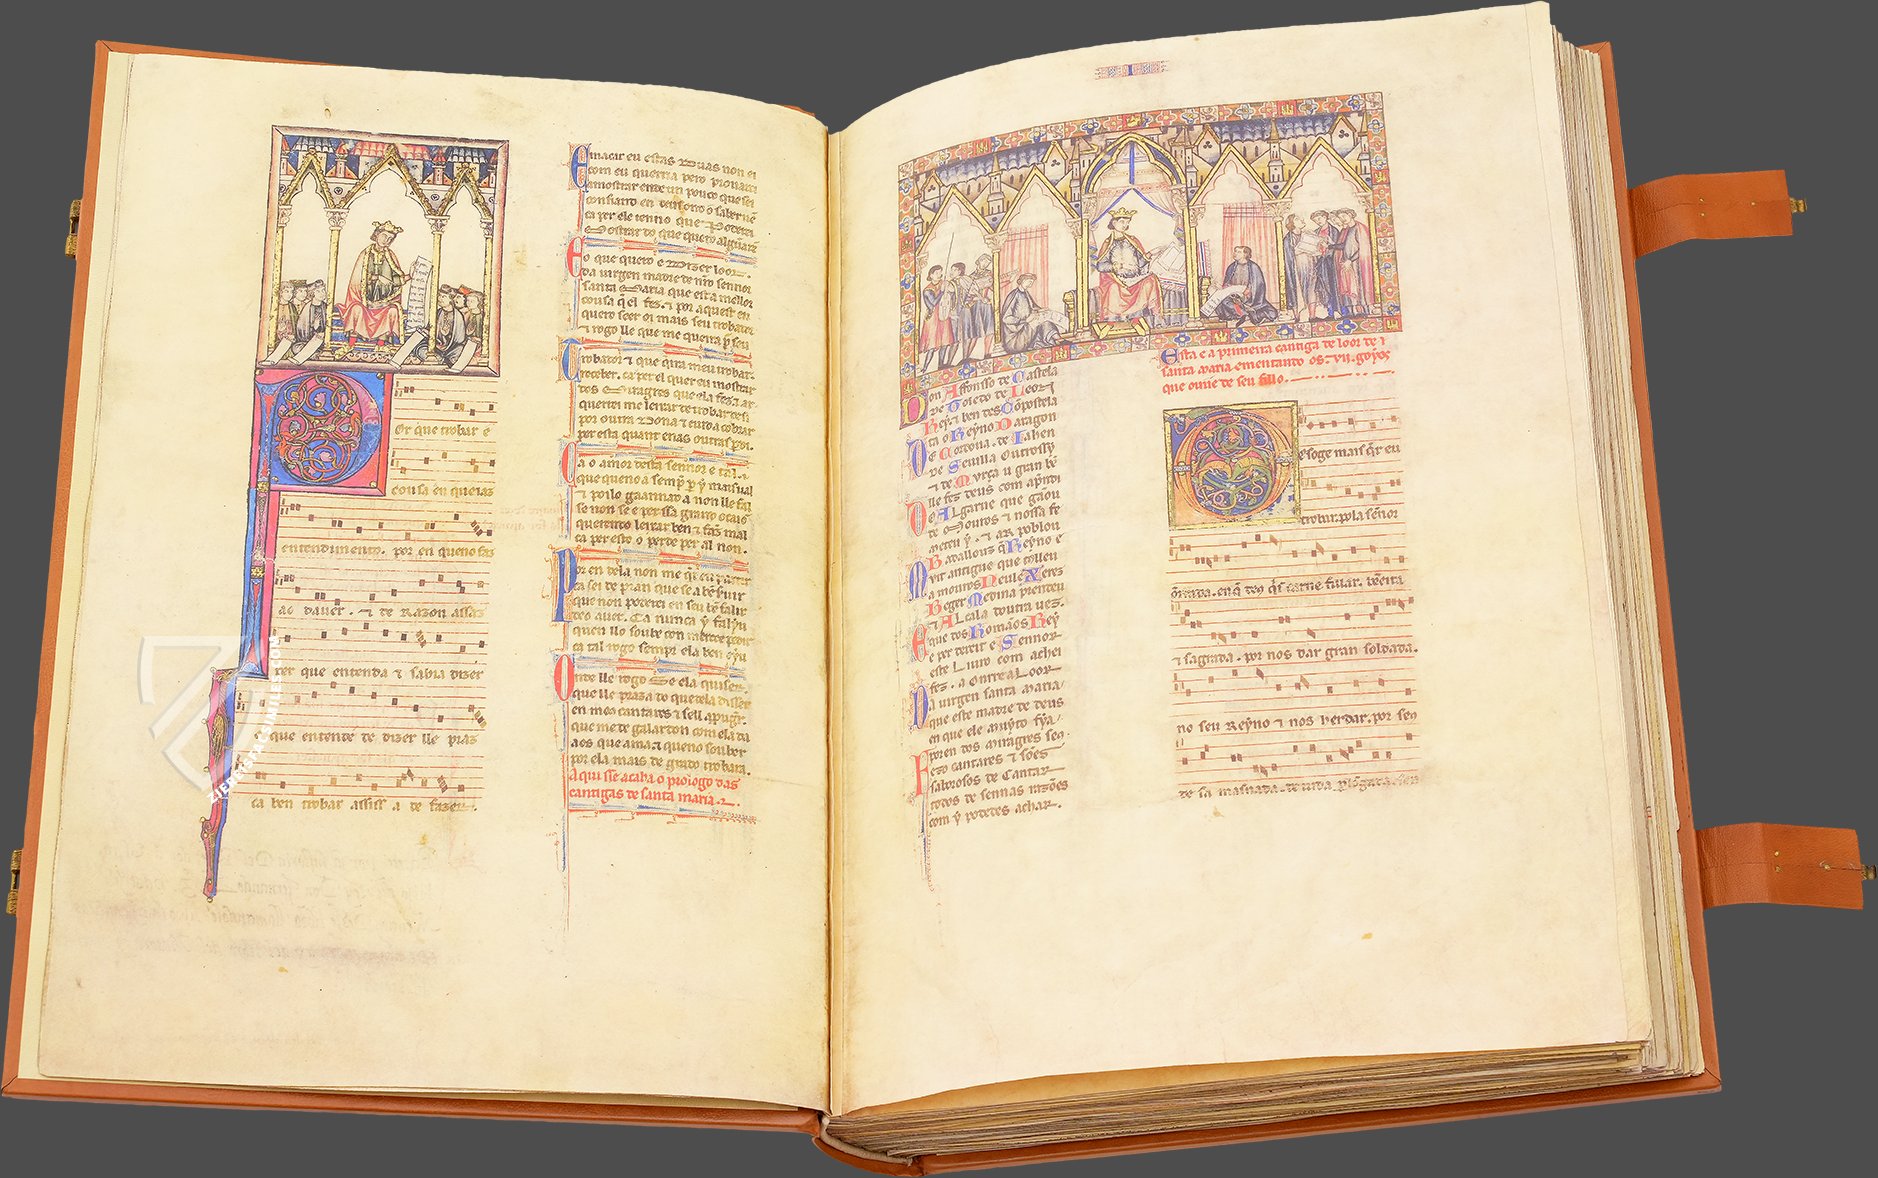 Or que trobar e
cousa en que iaz
entendimento. por en queno faz
ao dauer. ⁊ de razon assaz
per que entenda ⁊ sabia dizer
o que entende de dizer lle praz
ca ben trobar assi s a de fazer.
E macar eu estas duas non ei
com eu querria pero prouarei
a mostrar ende un pouco que sei
confiand en deus ond o saber uen
ca per ele tenno que poderei
mostrar do que quero algũa ren
E o que quero e dizer loor
da uirgen madre de nr̃o sennor
santa maria que est a mellor
cousa q̃ el fez. ⁊ por aquest eu
quero seer oi mais seu trobador
⁊ rogo lle que me queira p̃ seu
Trobador ⁊ que q̃ira meu trobar
reçeber. ca per el quer eu mostrar
dos miragres que ela fez. ⁊ ar
querrei me leixar de trobar desi
por outra dona ⁊ cuid a cobrar
per esta quant enas outras p̃di.
Ca o amor desta sennor e tal.
que queno a semp̃ p̃ y mais ual
⁊ poi lo gaannad a non lle fal
se non se e per ssa grand ocaiõ
querendo leixar ben ⁊ faz̃ mal
ca per esto o perde per al non.
Por en dela non me q̃r eu partir
ca sei de pran que se a bẽ seruir
que non poderei en seu bẽ falir
deo auer. ca nunca y faliu
quen llo soube con merçee pedir
ca tal rogo sempr ela ben oyu
Onde lle rogo se ela quiser.
que lle praza do que dela disser
en meus cantares ⁊ se ll aprouguer.
que me de galardon com ela da
aos que ama. ⁊ queno souber
por ela mais de grado trobara.
Aqui sse acaba o prologo das
cantigas de santa maria.
I
Don Affonsso de Castela
de Toledo de Leon
Rey ⁊ ben des Cõpostela
ta o Reyno Daragon
De Cordoua. de Iahen
de Seuilla outrossy
⁊ de Murça u gran bẽ
lle fez deus com apñdi
Do Algarue que gãou
de mouros ⁊ nossa fe
meteu y. ⁊ ar poblou
Badallouz q̃ Reyno e
Muit antigue que tolleu
a mouros Neul e Xerez
Beger Medina prendeu
⁊ Alcala doutra uez.
E que dos Romãos Rey
e per dereit e Sennor
este Liuro com achei
fez. a onrr e a Loor
Da uirgen santa maria
que este madre de deus
en que ele muyto fya
poren dos miragres seus
Fezo cantares ⁊ sões
saborosos de cantar
todos de sennas razões
com y podedes achar.
Esta e a primeira cantiga de loor de
santa maria ementando os. vii. goyos
que ouue de seu fillo.
Des oge mais q̃r eu
trobar. pola sẽnor
õrrada. en q̃ de9 q̃s carne fillar. bẽeita
⁊ sagrada. por nos dar gran soldada.
no seu reyno ⁊ nos herdar. por seus
de sa masnada. de uida p̃lõgada. sen